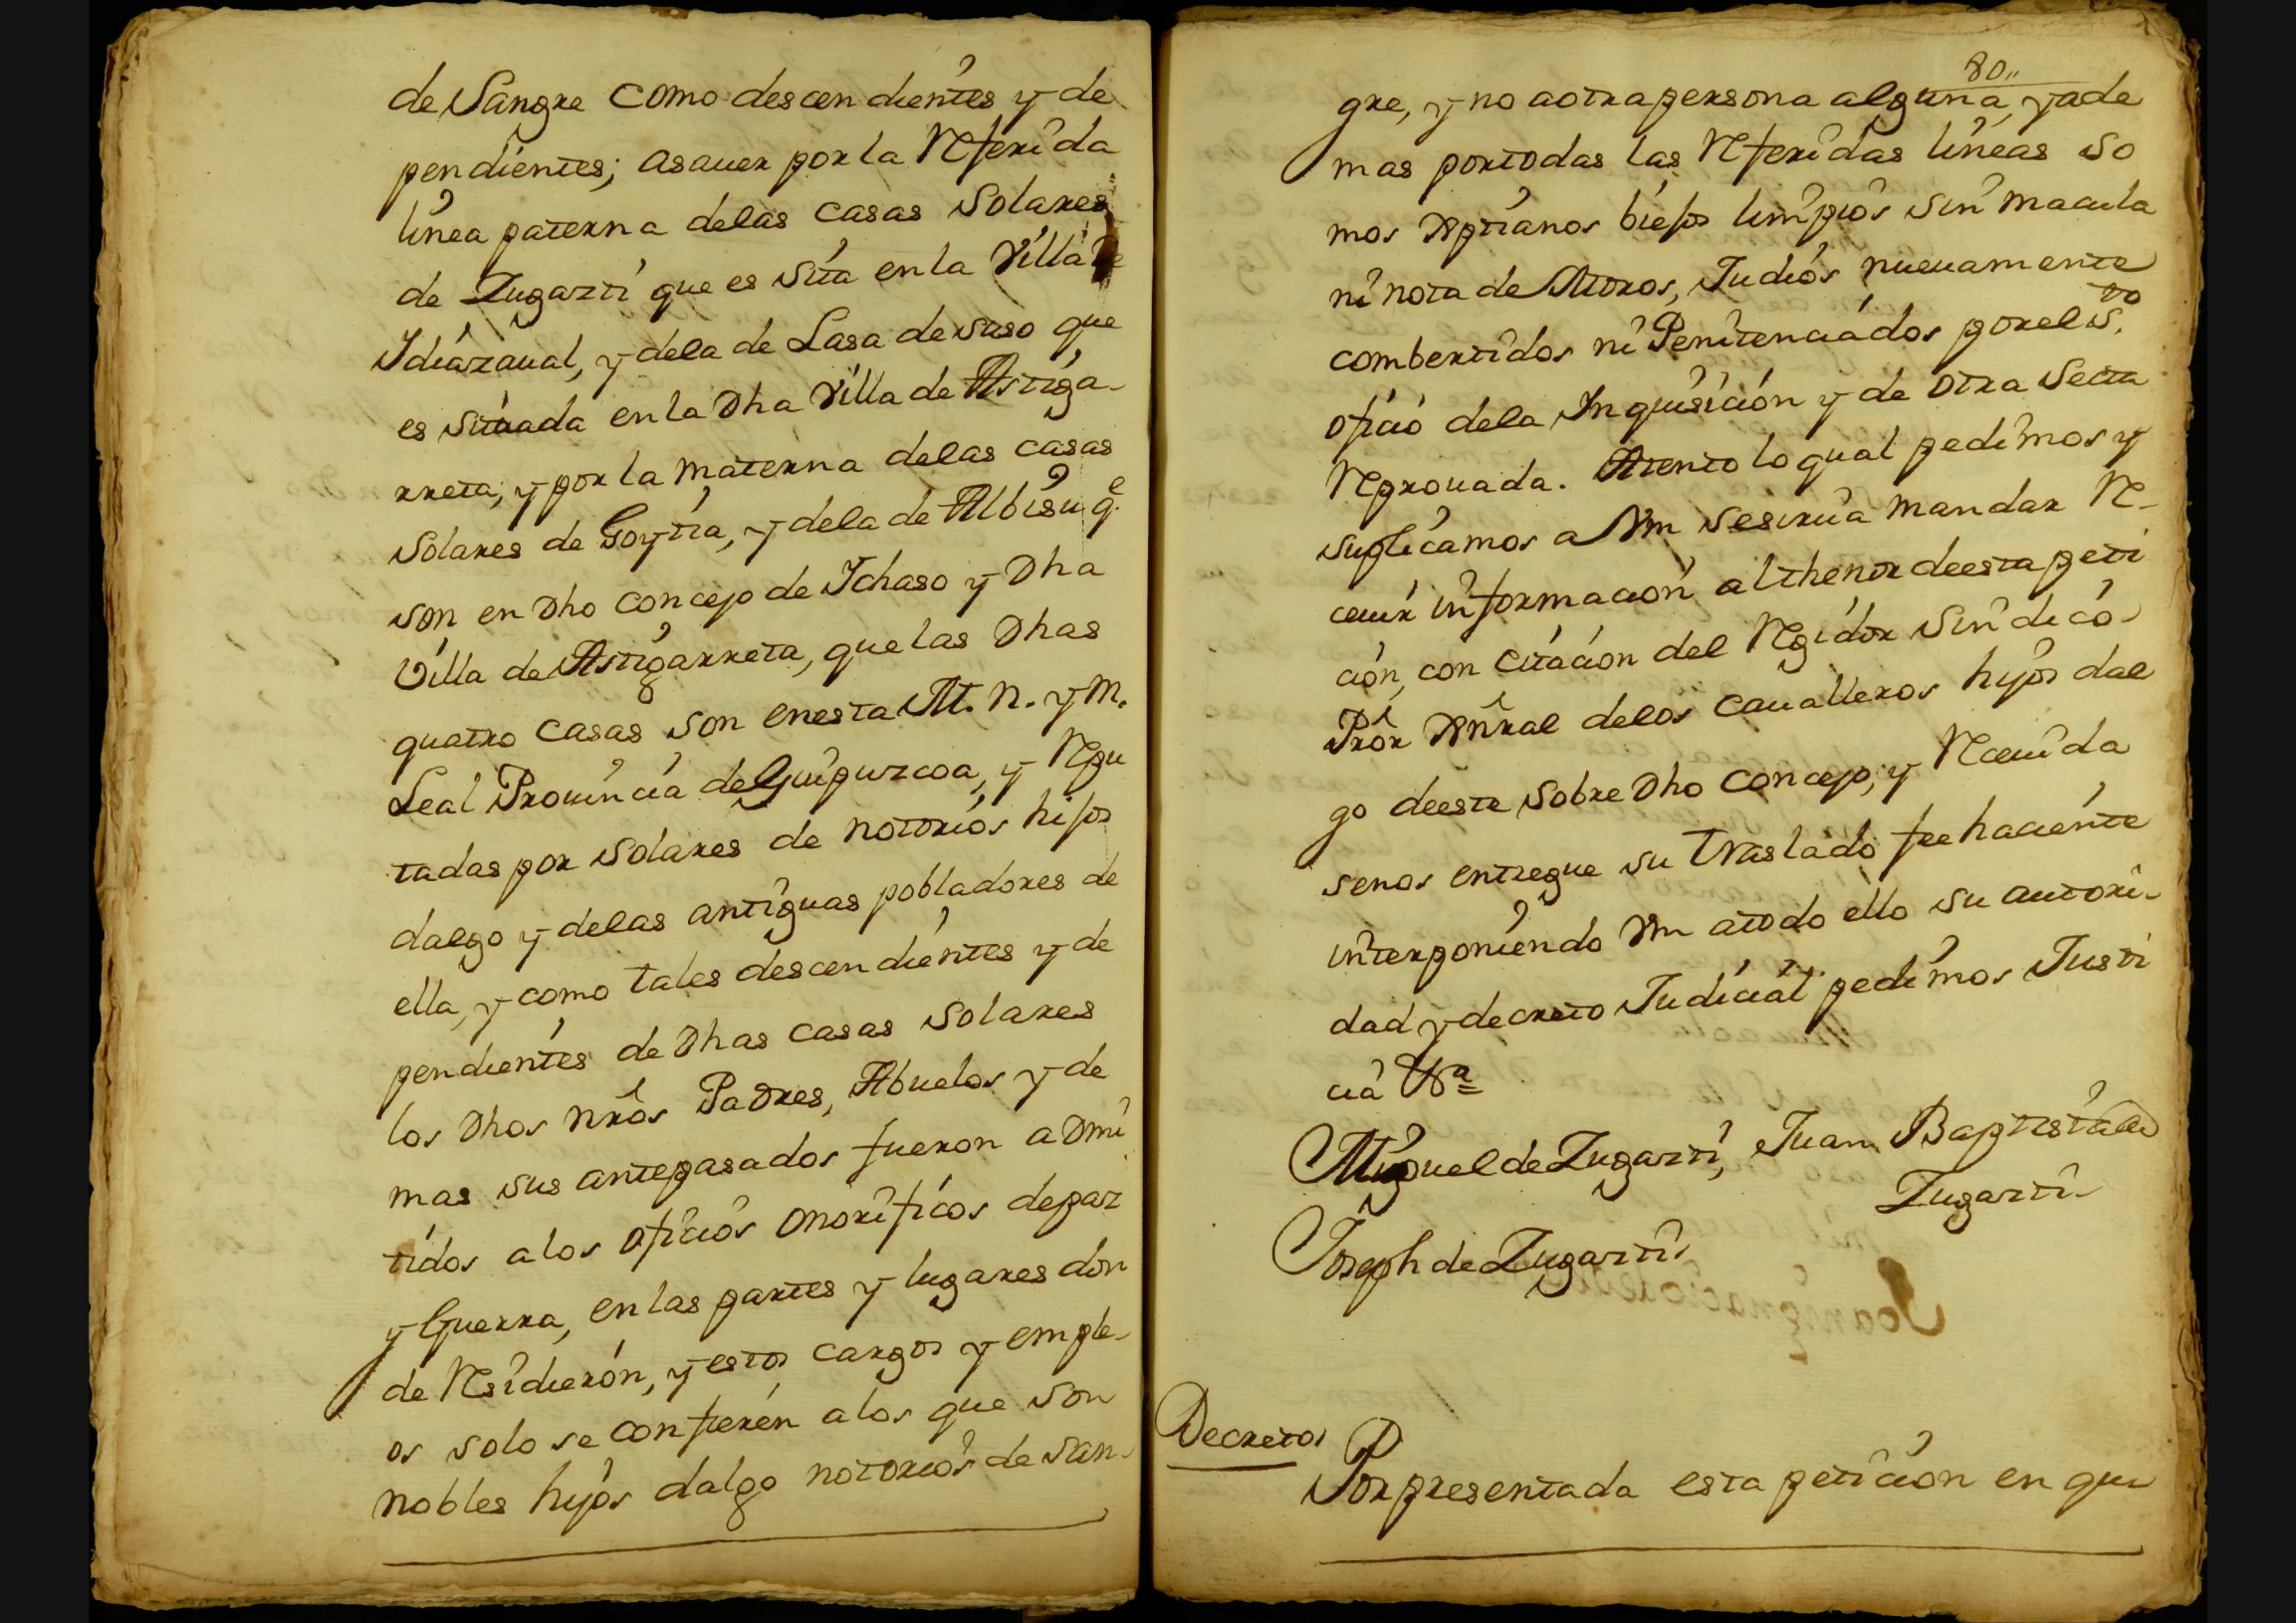 de Sangre como descendientes y de
pendientes; asauer por la Referida
linea paterna delas casas Solares
de Zugazti que es sita en la Villa de
Idiazaual, y dela de Lasa de suso que
es situada en la Dha Villa de Astiga-
rreta, y por la materna delas casas
Solares de Goytia, y dela de Albisu q.e
son en Dho concejo de Ichaso y Dha
Villa de Astigarreta, que las Dhas
quatro casas son en esta M. N. y M.
Leal Prouincia de Guipuzcoa, y Repu
tadas por Solares de notorios hijos
dalgo y delas antiguas pobladores de
ella, y como tales descendientes y de
pendientes de Dhas casas Solares
los Dhos nros Padres, Abuelos y de
mas sus antepasados fueron admi
tidos alos oficios onorificos de paz
y Guerra, en las partes y lugares don
de Residieron, y estos cargos y emple-
os solo se confieren alos que son
nobles hijos dalgo notorios de san-
80,,
gre, y no aotra persona alguna, y ade
mas por todas las Referidas lineas so
mos Xptianos biejos limpios sin macula
ni nota de Moros, Judios nueuamente
combertidos ni Penitenciados por el S.to
oficio dela Inquisicion y de otra Secta
Reprouada. Atento lo qual pedimos y
suplicamos a Vm se sirua mandar Re-
ceuir informacion al thenor de esta peti
cion, con citacion del Regidor Sindico
Pror Xnral delos caualleros hijos dal
go de este sobre Dho concejo, y Receuida
se nos entregue su traslado fee haciente
interponiendo Vm atodo ello su autori-
dad y decreto Judicial pedimos Justi
cia Va
Miguel de Zugazti, Juan Baptista de
Zugazti
Joseph de Zugazti
Decreto
Por presentada esta peticion en qu